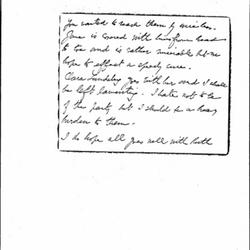 You wanted to reach them by
is covered with from head
to toe and is rather miserable but we
hope to effect a speedy cure.
you with her and I shall
be left lamenting. I hate not to be
of the party but I should be a heavy
burden to them.
I do hope all goes well with both